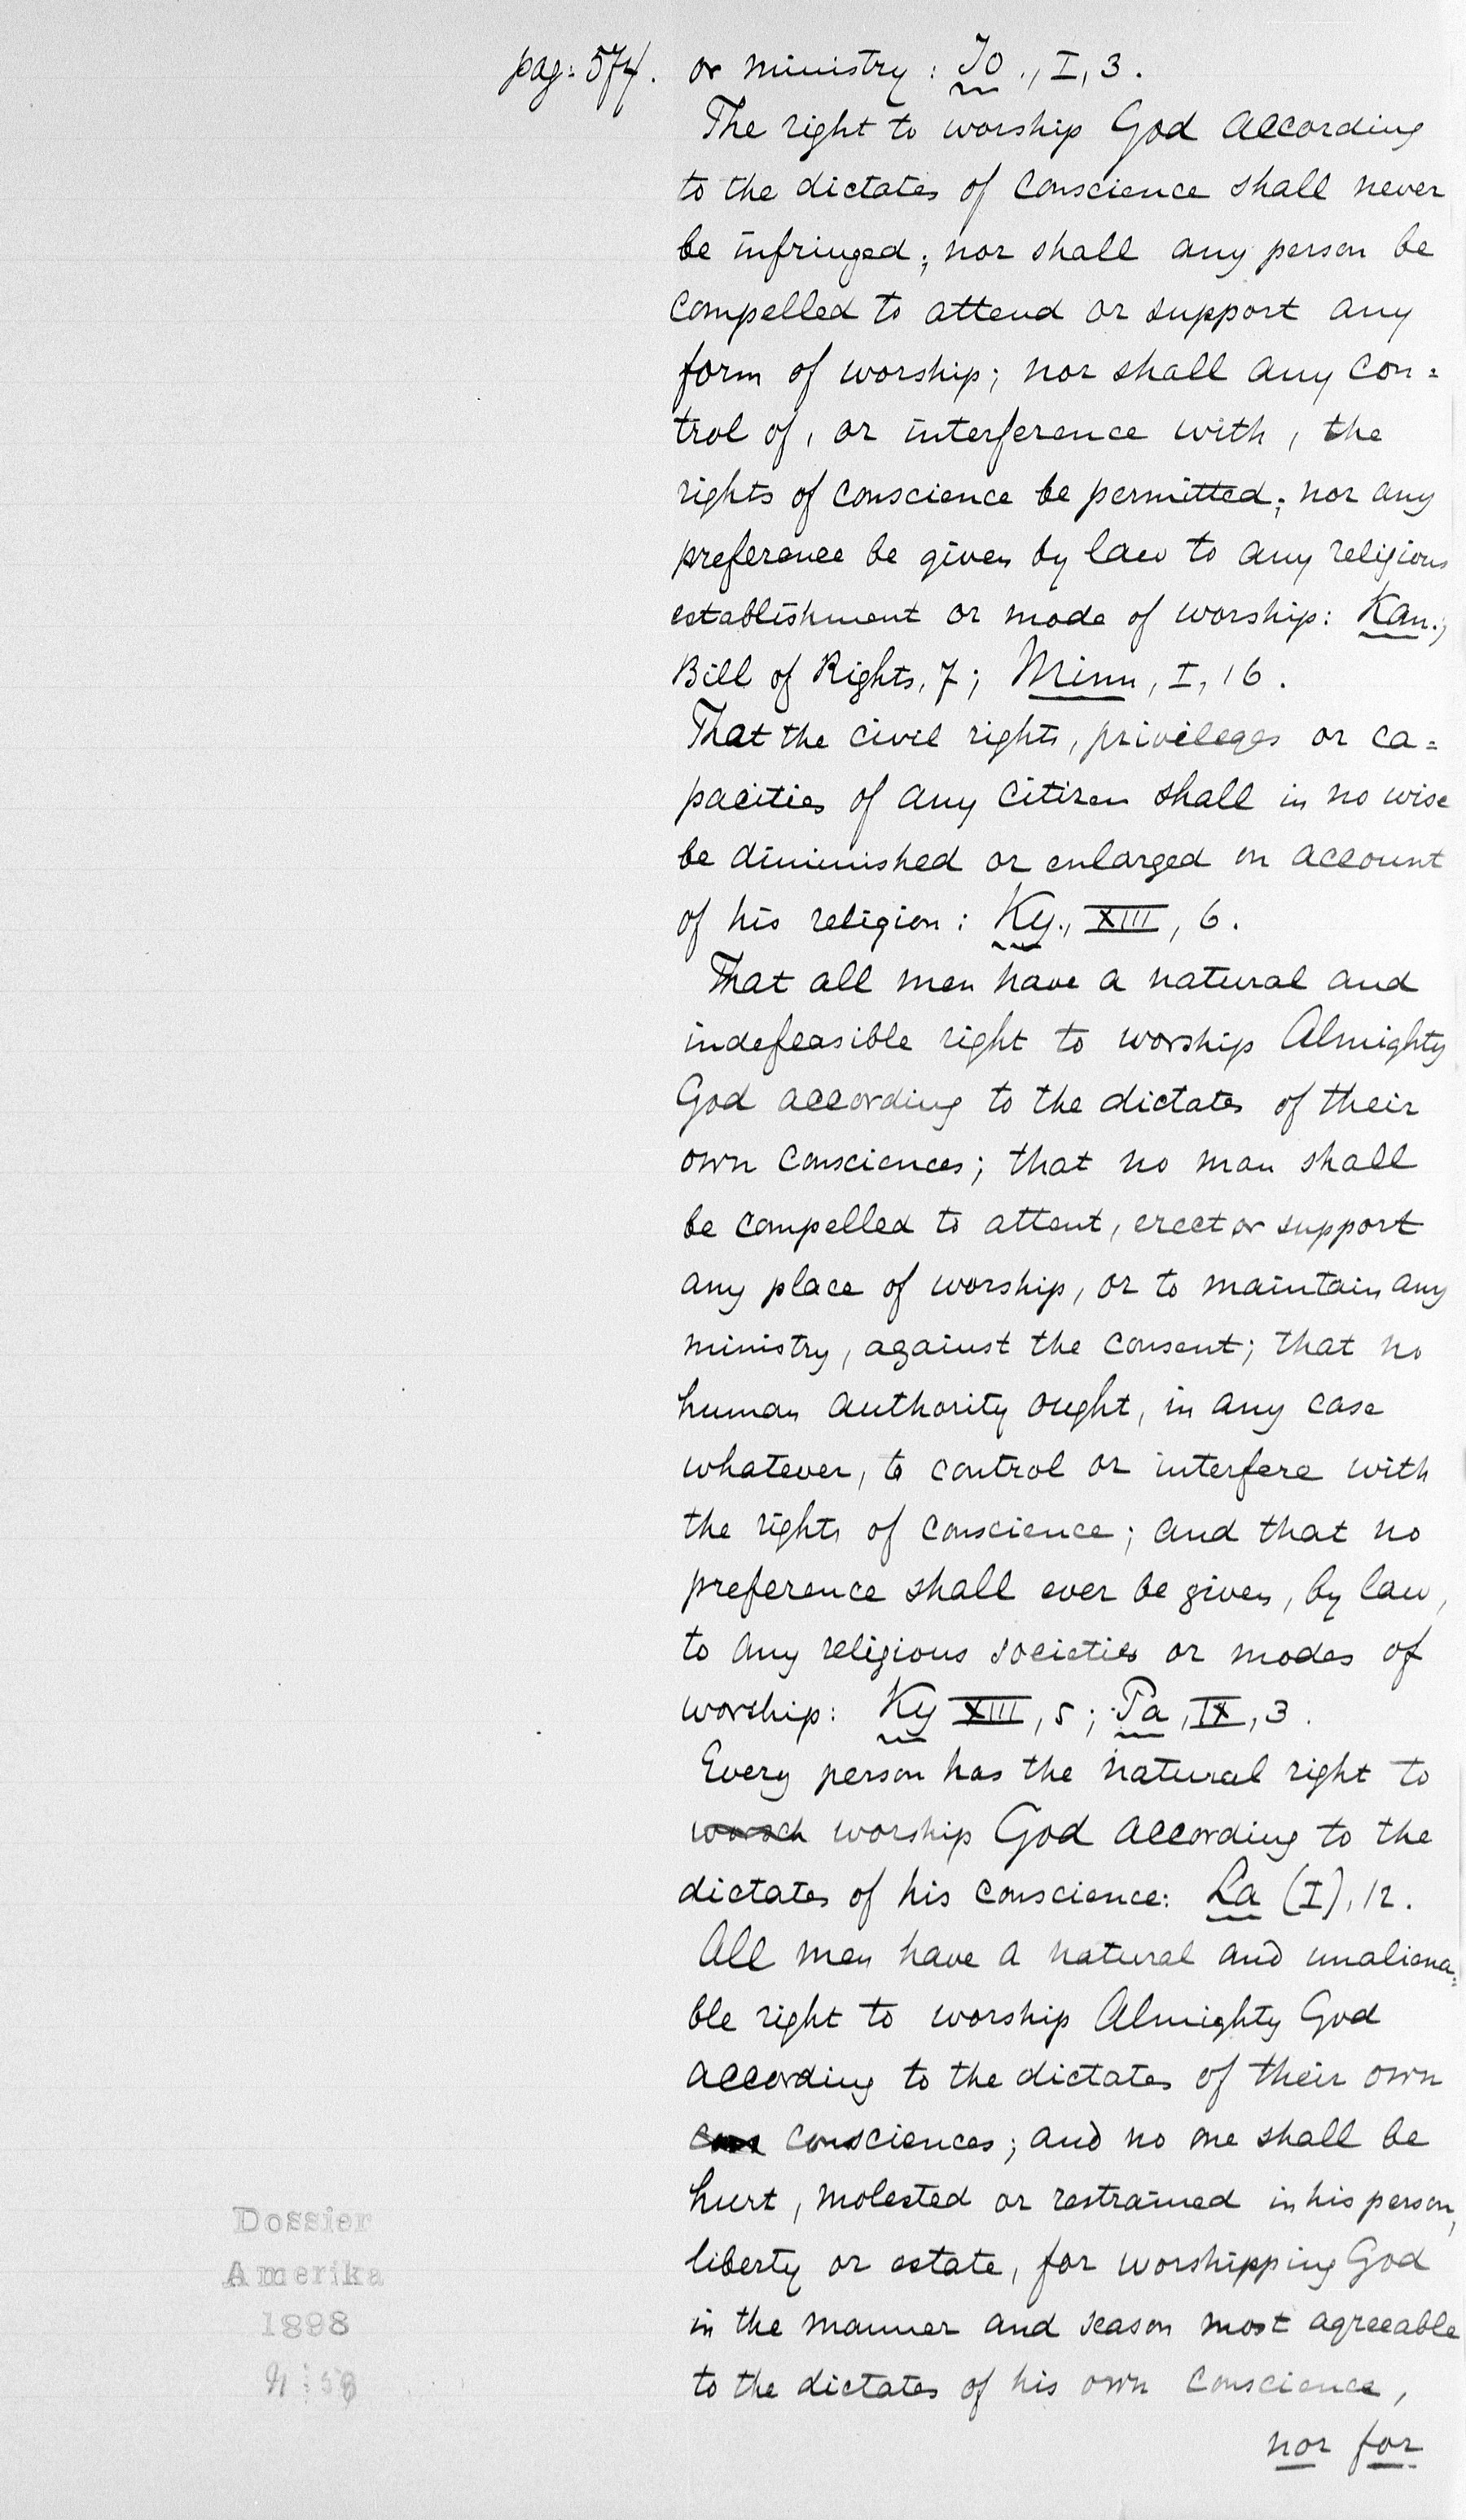 pag: 574. or ministry: Io., I, 3.
The right to worship God according
to the dictates of conscience shall never
be infringed; nor shall any person be
compelled to attend or support any
form of worship; nor shall any con=
trol of, or interference with, the
rights of conscience be permitted; nor any
preference be given by law to any religious
establishment or mode of worship: Kan.,
Bill of Rights, 7; Minn, I, 16.
That the civil rights, privileges or ca=
pacities of any citizen shall in no wise
be diminished or enlarged on account
of his religion: Ky., XIII, 6.
That all men have a natural and
indefeasible right to worship Almighty
God according to the dictates of their
own consciences; that no man shall
be compelled to attent, erect or support
any place of worship, or to maintain any
ministry, against the consent; that no
human authority ought, in any case
whatever, to control or interfere with
the rights of conscience; and that no
preference shall ever be given, by law,
to any religious societies or modes of
worship: Ky XIII, 5; Pa, IX, 3.
Every person has the natural right to
worsch worship God according to the
dictates of his conscience: La (I), 12.
All men have a natural and unaliena=
ble right to worship Almighty God
according to the dictates of their own
consciences; and no one shall be
hurt, molested or restrained in his person,
liberty or estate, for worshipping God
in the manner and season most agreeable
to the dictates of his own conscience,
nor for
Dossier
Amerika
1898